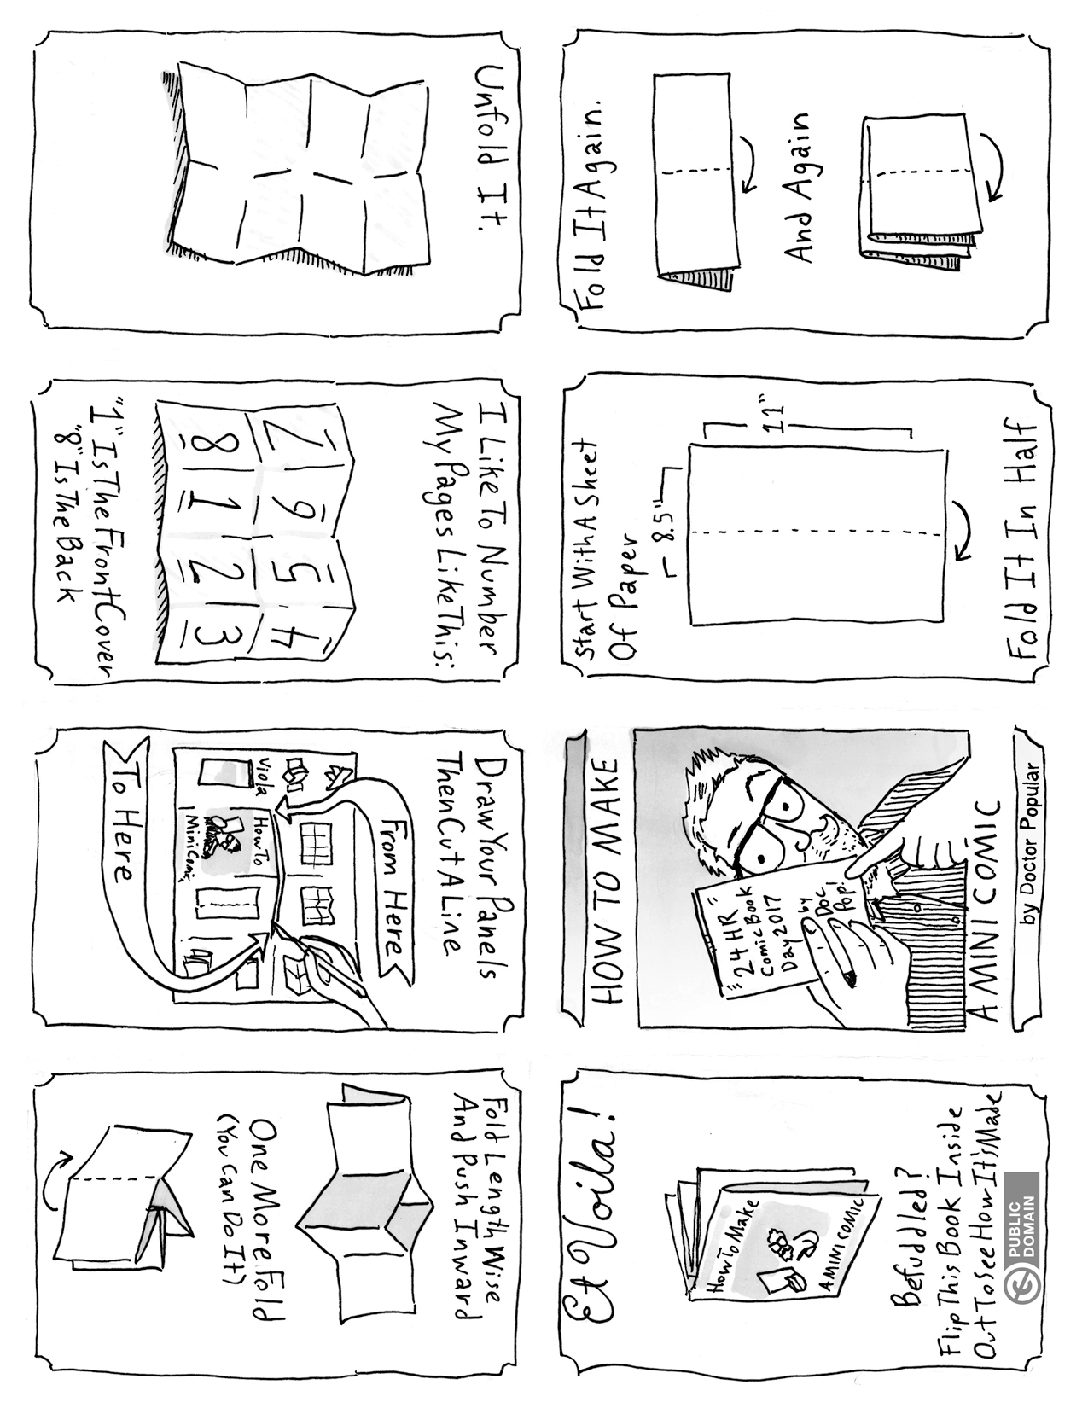 HOW TO MAKE
"24 HR"
Comic Book
Day 2017
by
Doc
Pop!
A MINI COMIC
by Doctor Popular
Start With A Sheet
Of Paper
8.5"
11"
Fold It In Half
Fold It Again.
And Again
Unfold It.
I Like To Number
My Pages Like This:
7 6 5 4
8 1 2 3
"1" Is The Front Cover
"8" Is The Back
Draw Your Panels
Then Cut A Line
From Here
Viola
How To
Mini Comic
To Here
Fold Length Wise
And Push Inward
One More Fold
(You Can Do It)
Et Voila!
How To Make
A MINI COMIC
Befuddled?
Flip This Book Inside
Out To See How It's Made
PUBLIC
DOMAIN